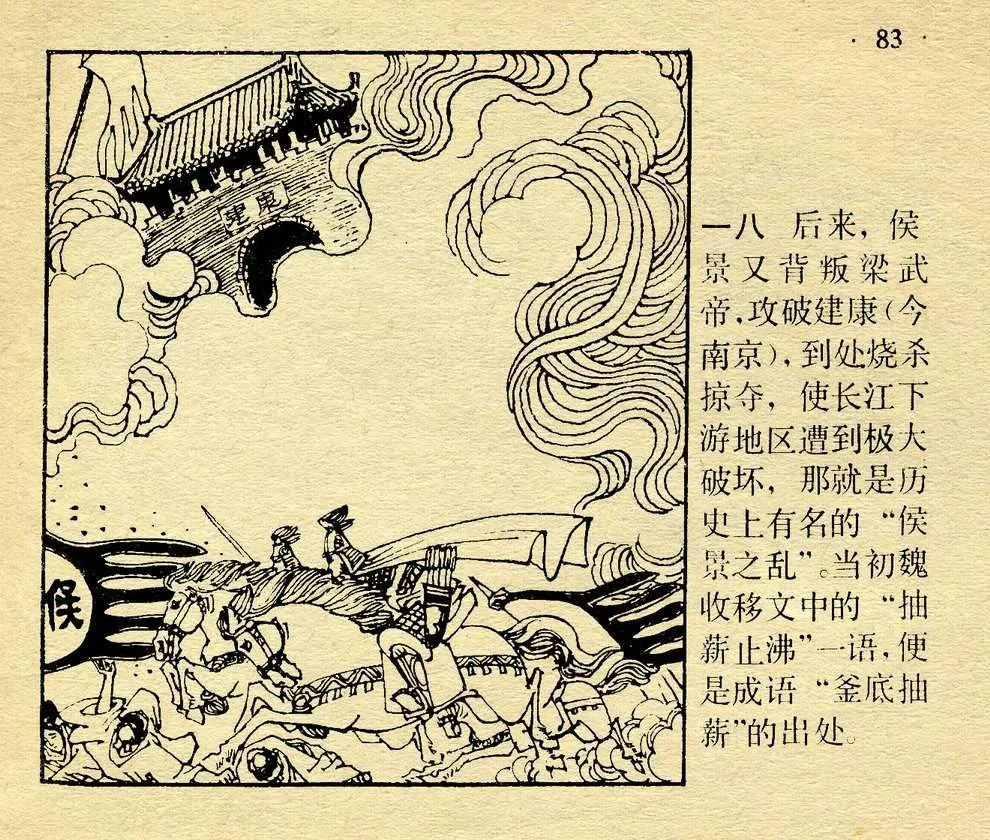 · 83 ·
建康
侯
一八 后来，侯
景又背叛梁武
帝，攻破建康（今
南京），到处烧杀
掠夺，使长江下
游地区遭到极大
破坏，那就是历
史上有名的“侯
景之乱”。当初魏
收移文中的“抽
薪止沸”一语，便
是成语“釜底抽
薪”的出处。